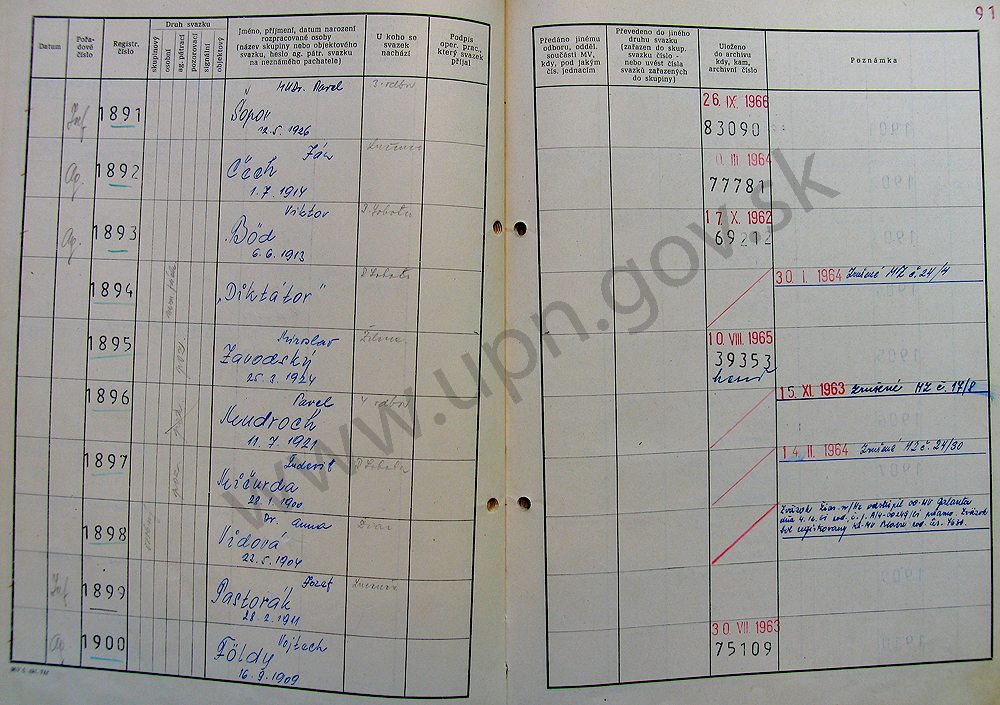 91
Datum
Pořa-
dové
číslo
Registr.
číslo
Druh svazku
skupinový
osobní
ag. pátrací
pozorovací
signální
objektový
Jméno, příjmení, datum narození
rozpracované osoby
(název skupiny nebo objektového
svazku, heslo ag. pátr. svazku
na neznámého pachatele)
U koho se
svazek
nachází
Podpis
oper. prac.,
který svazek
přijal
Předáno jinému
odboru, odděl.
součásti MV,
kdy, pod jakým
čís. jednacím
Převedeno do jiného
druhu svazku
(zařazen do skup.
svazku číslo -
nebo uvést čísla
svazků zařazených
do skupiny)
Uloženo
do archivu
kdy, kam,
archivní číslo
Poznámka
Inf
1891
MUDr. Pavel
Šopor
12.5.1926
3. odbor
26. IX. 1966
83090
Ag.
1892
Ján
Čěch
1.7.1914
Lučenec
III 1964
77781
Ag.
1893
Viktor
Böd
6.6.1913
R Sobota
17. X. 1962
69212
1894
„Diktátor"
R Sobota
30. I. 1964 Zrušené MZ č. 24/4
1895
Miroslav
Závodský
25.3.1924
Žilina
10. VIII. 1965
39353
1896
Pavel
Mudroch
11.7.1921
V odbor
15. XI. 1963 Zrušené MZ č. 17/8
1897
Ľudovít
Mičurda
28.1.1900
R Sobota
14. II. 1964 Zrušené MZ č. 24/30
1898
Dr. Anna
Vidová
22.5.1904
Zväzok odstúpil OO-MV Galanta
Inf
1899
Jozef
Pastorák
28.2.1911
Lučenec
Ag.
1900
Vojtech
Földy
16.9.1909
30 VII. 1963
75109
www.upn.gov.sk